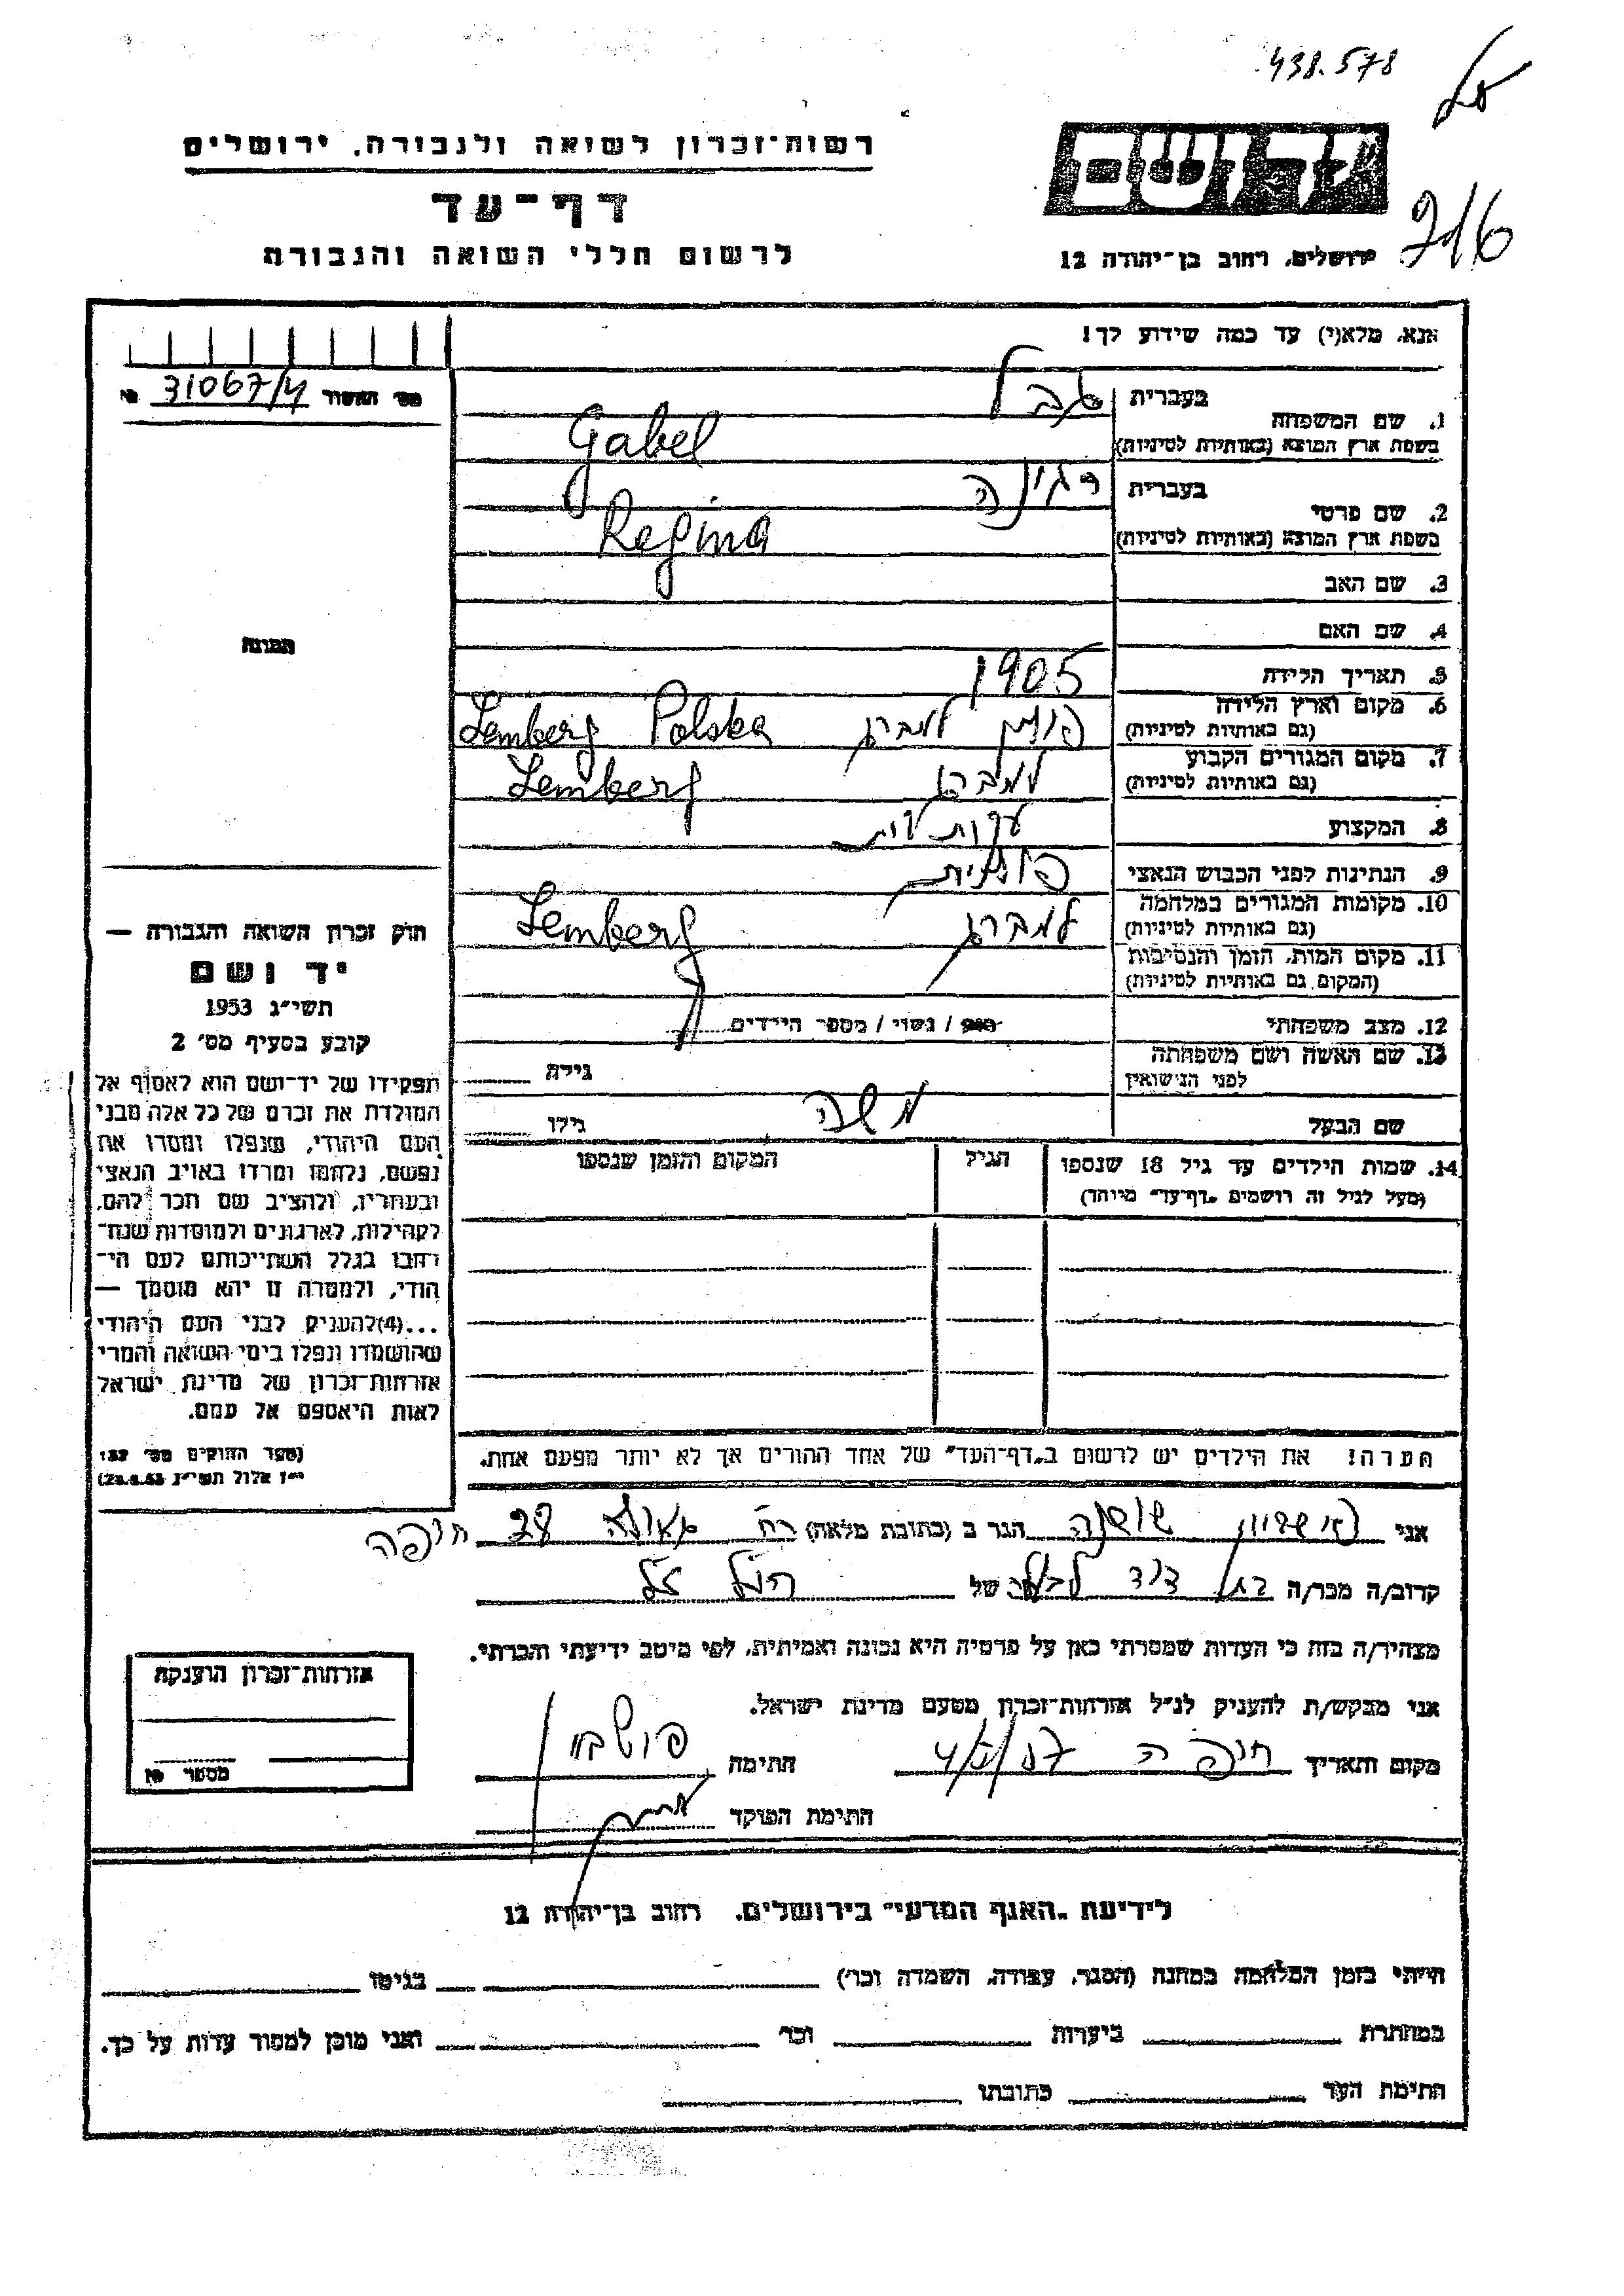 438.578
רשות־זכרון לשואה ולגבורה, ירושלים
דף־עד
לרשום חללי השואה והגבורה
יד ושם
ירושלים, רחוב בן־יהודה 12
אנא, מלא(י) עד כמה שידוע לך!
מס׳ האשור № 31067/4
1. שם המשפחה
בעברית גבל
בשפת ארץ המוצא (באותיות לטיניות) Gabel
2. שם פרטי
בעברית רגינה
בשפת ארץ המוצא (באותיות לטיניות) Regina
3. שם האב
4. שם האם
תמונה
5. תאריך הלידה 1905
6. מקום וארץ הלידה
(גם באותיות לטיניות) פולין למברג Lemberg Polska
7. מקום המגורים הקבוע
(גם באותיות לטיניות) למברג Lemberg
8. המקצוע עקרת בית
9. הנתינות לפני הכבוש הנאצי פולנית
10. מקומות המגורים במלחמה
(גם באותיות לטיניות) למברג Lemberg
11. מקום המות, הזמן והנסיבות
(המקום גם באותיות לטיניות)
12. מצב משפחתי רווק / נשוי / מספר הילדים
13. שם האשה ושם משפחתה
לפני הנישואין גילה
שם הבעל משה גילו
14. שמות הילדים עד גיל 18 שנספו
(מעל לגיל זה רושמים „דף־עד” מיוחד)
הגיל
המקום והזמן שנספו
חוק זכרון השואה והגבורה —
יד ושם
תשי״ג 1953
קובע בסעיף מס׳ 2
תפקידו של יד־ושם הוא לאסוף אל
המולדת את זכרם של כל אלה מבני
העם היהודי, שנפלו ומסרו את
נפשם, נלחמו ומרדו באויב הנאצי
ובעוזריו, ולהציב שם וזכר להם,
לקהילות, לארגונים ולמוסדות שנח־
רבו בגלל השתייכותם לעם הי־
הודי, ולמטרה זו יהא מוסמך —
...(4) להעניק לבני העם היהודי
שהושמדו ונפלו בימי השואה והמרי
אזרחות־זכרון של מדינת ישראל
לאות היאספם אל עמם.
(ספר החוקים מס׳ 132
י״ז אלול תשי״ג 28.8.53)
הערה! את הילדים יש לרשום ב„דף־העד” של אחד ההורים אך לא יותר מפעם אחת.
אני שושנה הגר ב (כתובת מלאה) רח גאולה 28 חיפה
קרוב/ה מכר/ה דוד של הנ״ל
מצהיר/ה בזה כי העדות שמסרתי כאן על פרטיה היא נכונה ואמיתית, לפי מיטב ידיעתי והכרתי.
אני מבקש/ת להעניק לנ״ל אזרחות־זכרון מטעם מדינת ישראל.
מקום ותאריך חיפה חתימה
חתימת הפוקד
אזרחות־זכרון הוענקה
מספר №
לידיעת „האגף המדעי” בירושלים, רחוב בן־יהודה 12
הייתי בזמן המלחמה במחנה (הסגר, עבודה, השמדה וכר׳) בגיטו
במחתרת ביערות וכר׳ ואני מוכן למסור עדות על כך.
חתימת העד כתובתו